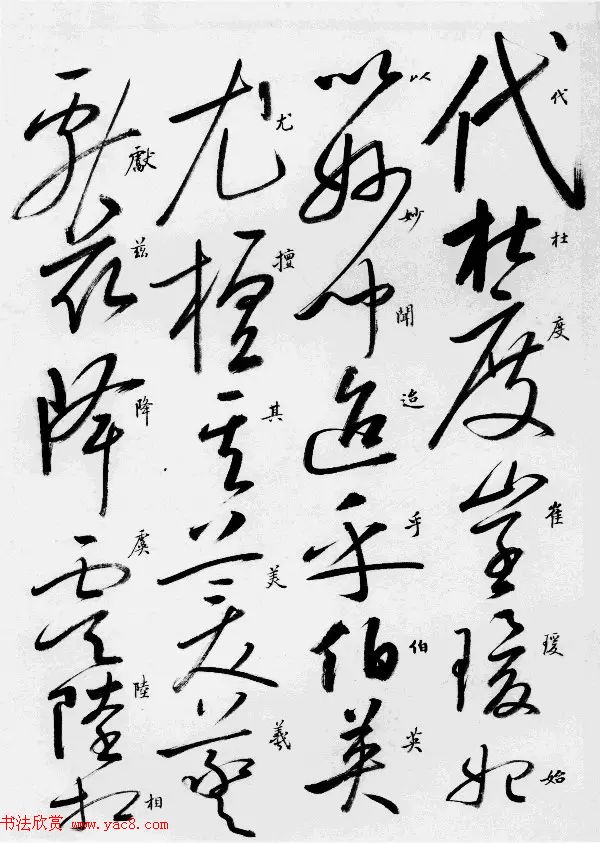 代杜度崔瑗始
以妙聞迨乎伯英
尤擅其美羲
獻茲降虞陸相
书法欣赏 www.yac8.com